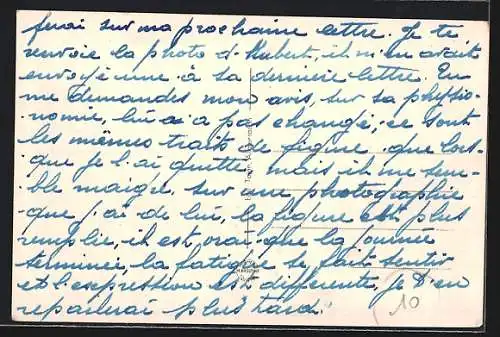 ferai sur ma prochaine lettre. Je te
renvoie la photo d. Hubert, il m'en avait
envoyé une à sa dernière lettre. Tu
me demandes mon avis, sur sa physio-
nomie, lui a pas changé, ce sont
les mêmes traits de figure que lors-
que je l'ai quitté mais il me sem-
ble maigre. sur une photographie
que j'ai de lui, la figure est plus
remplie, il est vrai que la journée
terminée, la fatigue se fait sentir
et l'expression est différente, Je t'en
reparlerai plus tard.
10